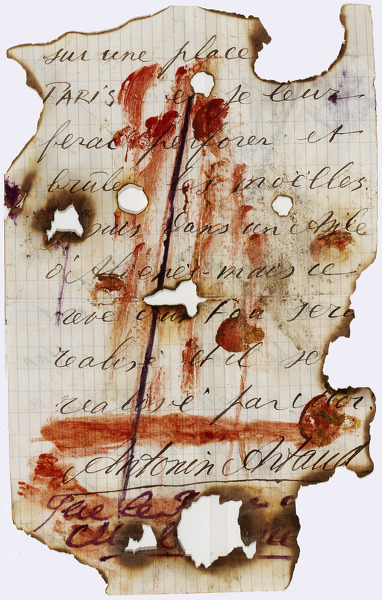 sur une place
PARIS et je leur
ferai perforer et
brûler les moelles.
suis dans un Asile
d'Aliénés mais ce
rêve d'un Fou sera
réalisé et il se
réalisé par
Antonin Artaud